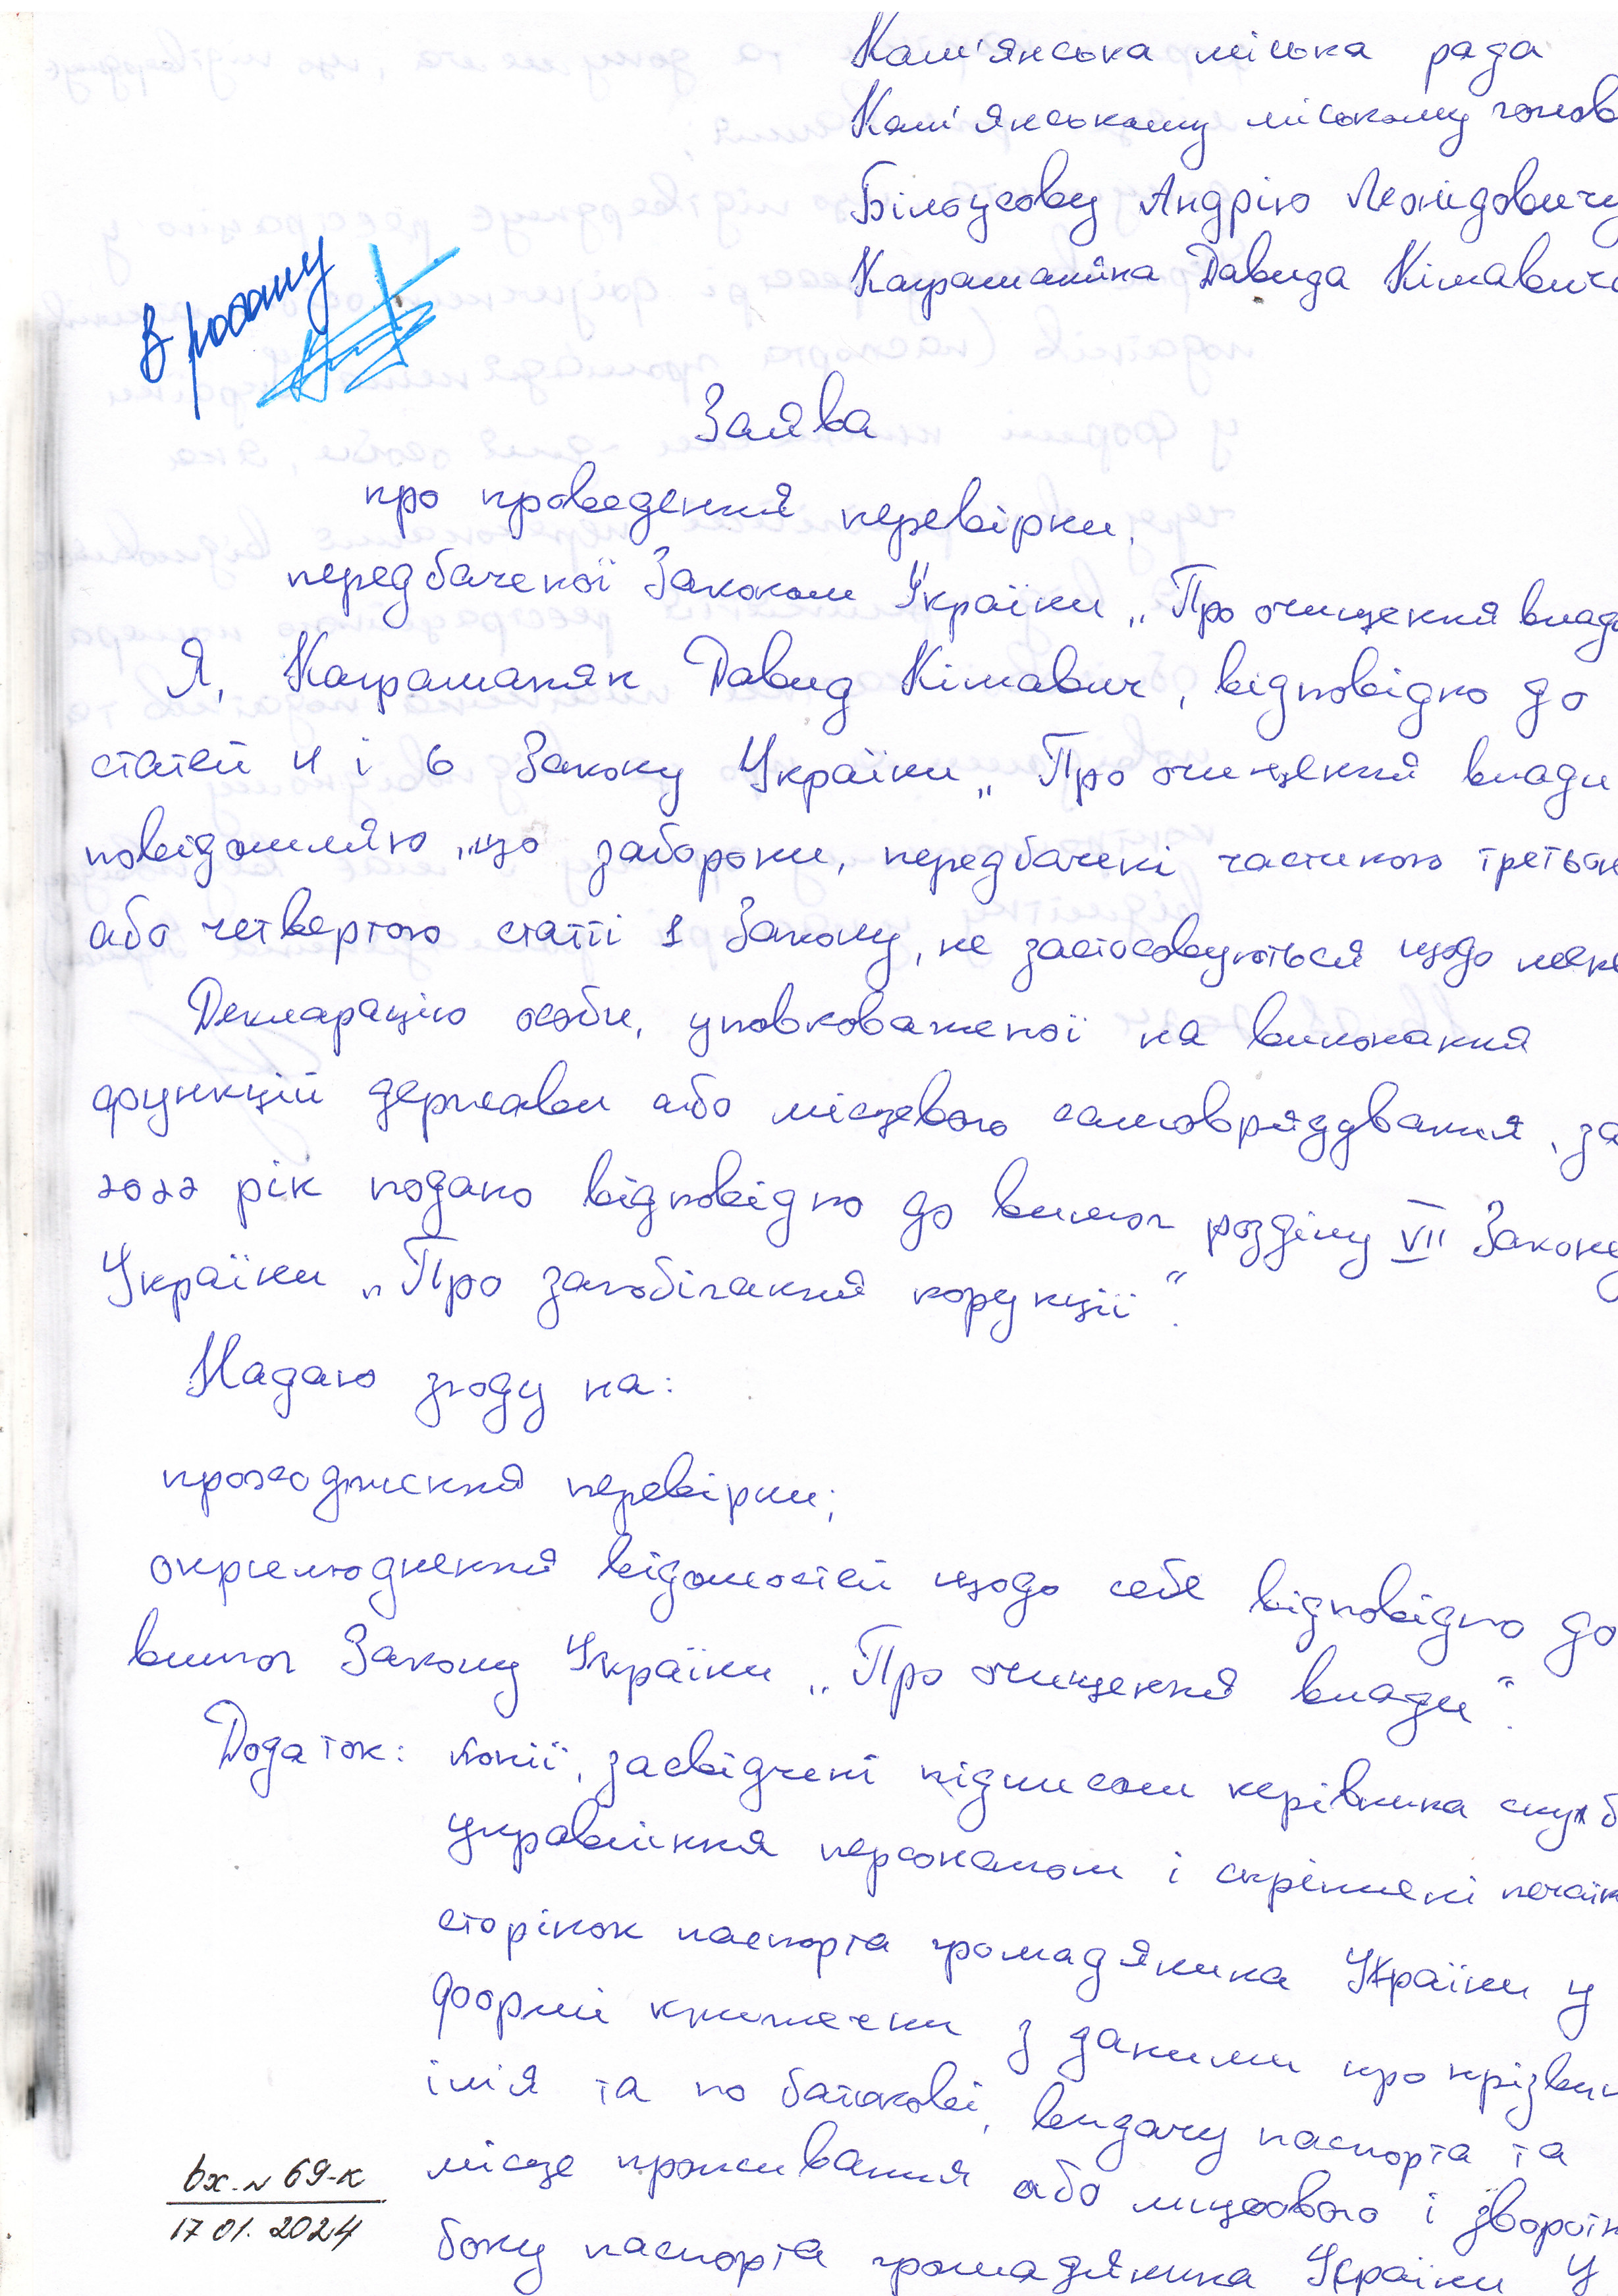 Кам'янська міська рада
Кам'янському міському голов
Білоусову Андрію Леонідовичу
Каграманяна Давида Кімавича
В роботу
Заява
про проведення перевірки,
передбаченої Законом України „Про очищення влади
Я, Каграманян Давид Кімавич, відповідно до
статей 4 і 6 Закону України „Про очищення влади
повідомляю, що заборони, передбачені частиною третьою
або четвертою статті 1 Закону, не застосовуються щодо мене
Декларацію особи, уповноваженої на виконання
функцій держави або місцевого самоврядування, за
2022 рік подано відповідно до вимог розділу VII Закону
України „Про запобігання корупції".
Надаю згоду на:
проходження перевірки;
оприлюднення відомостей щодо себе відповідно до
вимог Закону України „Про очищення влади".
Додаток: копії, засвідчені підписом керівника служб
управління персоналом і скріплені печатк
сторінок паспорта громадянина України у
формі книжечки з даними про прізвищ
ім'я та по батькові, видачу паспорта та
місце проживання або лицьового і зворотн
боку паспорта громадянина України у
вх. № 69-к
17 01. 2024